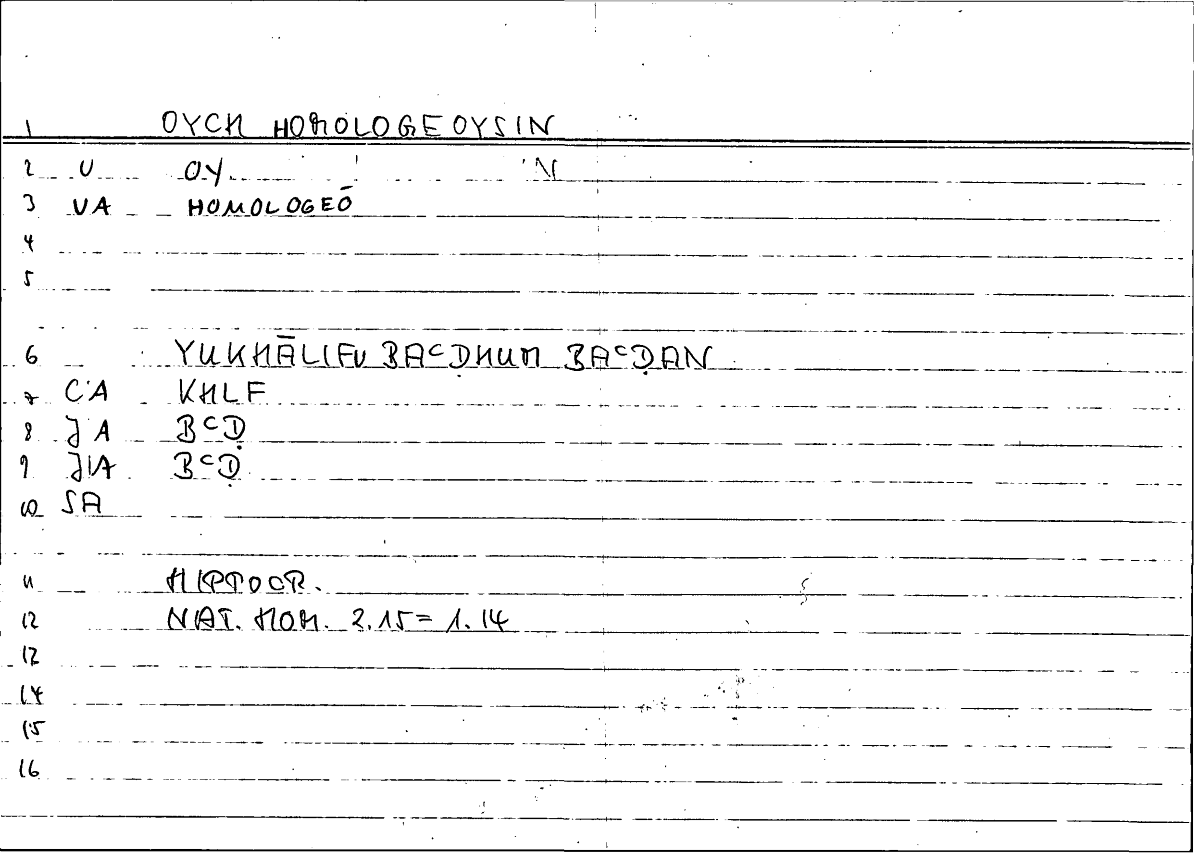 1 OYCH HOMOLOGEOYSIN
2 U OY N
3 VA HOMOLOGEŌ
4
5
6 YUKHĀLIFU BAcḌHUM BAcḌAN
7 CA KHLF
8 JA BcḌ
9 JIA BcḌ
10 SA
11 HIPPOCR.
12 NAT. HOM. 2.15 = 1.14
12
14
15
16